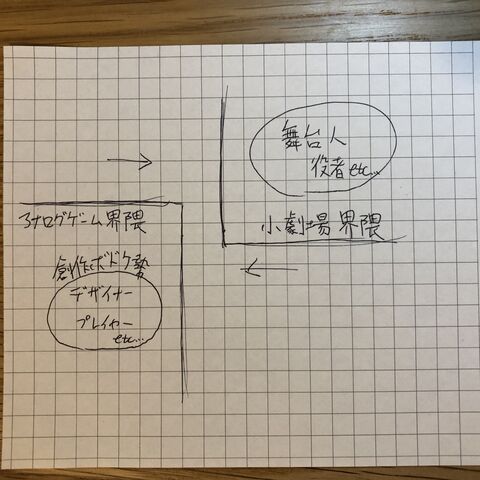 舞台人
役者etc...
小劇場界隈
アナログゲーム界隈
創作ボドゲ勢
デザイナー
プレイヤー
etc...